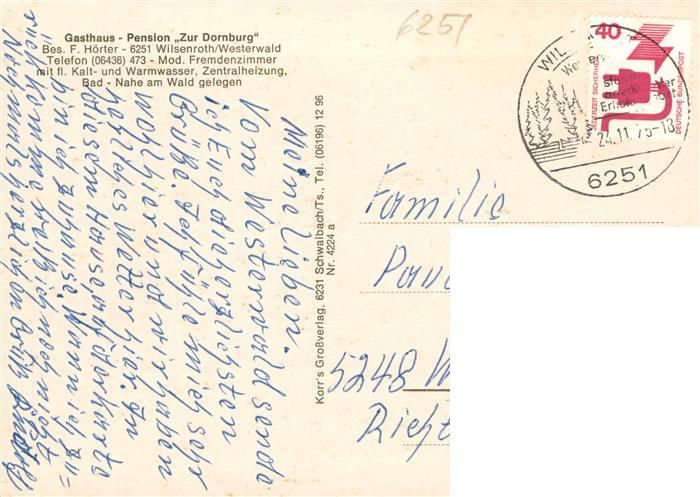 Gasthaus - Pension „Zur Dornburg"
Bes. F. Hörter - 6251 Wilsenroth/Westerwald
Telefon (06436) 473 - Mod. Fremdenzimmer
mit fl. Kalt- und Warmwasser, Zentralheizung,
Bad - Nahe am Wald gelegen
6251
40
JEDERZEIT SICHERHEIT
DEUTSCHE BUNDESPOST
WIL
24.11.75-18
6251
Korr's Großverlag, 6231 Schwalbach/Ts., Tel. (06196) 12 96
Nr. 4224 a
Meine Lieben.
Vom Westerwald sende
ich Euch die herzlichsten
Grüße. Ich fühle mich sehr
wohl hier und wir haben
schönes Wetter hier. In
diesem Hause
bin ich zuhause. Wann ich zu=
rück komme weiß ich noch nicht
Nochmals herzlichen Gruß
Familie
5248 W